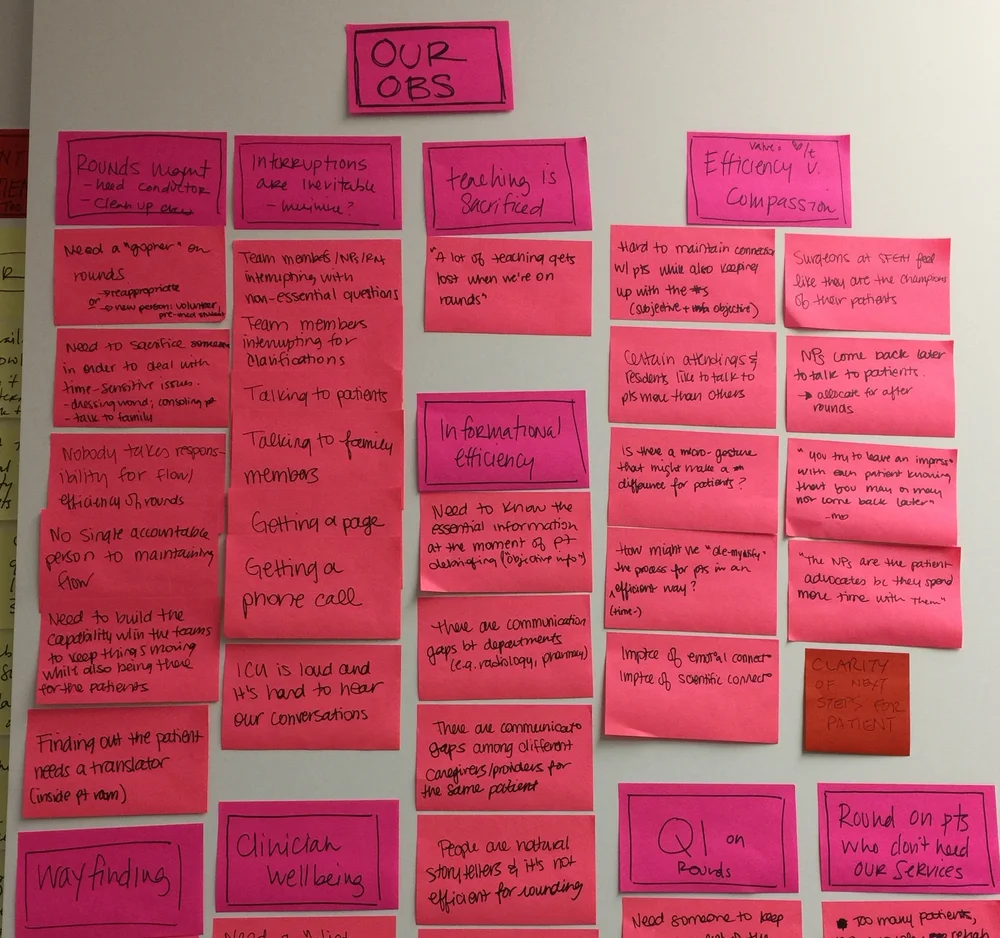 OUR
OBS
ROUNDS mgmt
- need conductor
- clean up crew
Need a "gopher" on
rounds
→ reappropriate
or → new person: volunteer,
pre-med student
Need to sacrifice someone
in order to deal with
time-sensitive issues.
- dressing wound, consoling pt
- talk to family
Nobody takes respons-
ibility for flow/
efficiency of rounds
No single accountable
person to maintaining
flow
Need to build the
capability w/in the teams
to keep things moving
while also being there
for the patients
Finding out the patient
needs a translator
(inside pt room)
Wayfinding
Interruptions
are inevitable
- minimize?
Team members/NPs/RN
interrupting with
non-essential questions
Team members
interrupting for
clarifications
Talking to patients
Talking to family
members
Getting a page
Getting a
phone call
ICU is loud and
it's hard to hear
our conversations
Clinician
wellbeing
teaching is
sacrificed
"A lot of teaching gets
lost when we're on
rounds"
Informational
efficiency
Need to know the
essential information
at the moment of pt
debriefing ("objective info")
There are communication
gaps bt departments
(e.g. radiology, pharmacy)
There are communicato
gaps among different
caregivers/providers for
the same patient
People are natural
storytellers & it's not
efficient for rounding
value: b/t
Efficiency v.
Compassion
Hard to maintain connection
w/ pts while also keeping
up with the #s
(subjective + objective)
Certain attendings &
residents like to talk to
pts more than others
Is there a micro-gesture
that might make a
difference for patients?
How might we "de-mystify"
the process for pts in an
efficient way?
(time-)
Imptce of emotnal connect
Imptce of scientific connect
Surgeons at SFGH feel
like they are the champions
of their patients
NPs come back later
to talk to patients.
→ allocate for after
rounds
"you try to leave an impress
with each patient knowing
that you may or may
not come back later"
- MD
"The NPs are the patient
advocates bc they spend
more time with them"
CLARITY
OF NEXT
STEPS FOR
PATIENT
QI on
Rounds
Need someone to keep
Round on pts
who don't need
OUR Services
Too many patients,
rehab